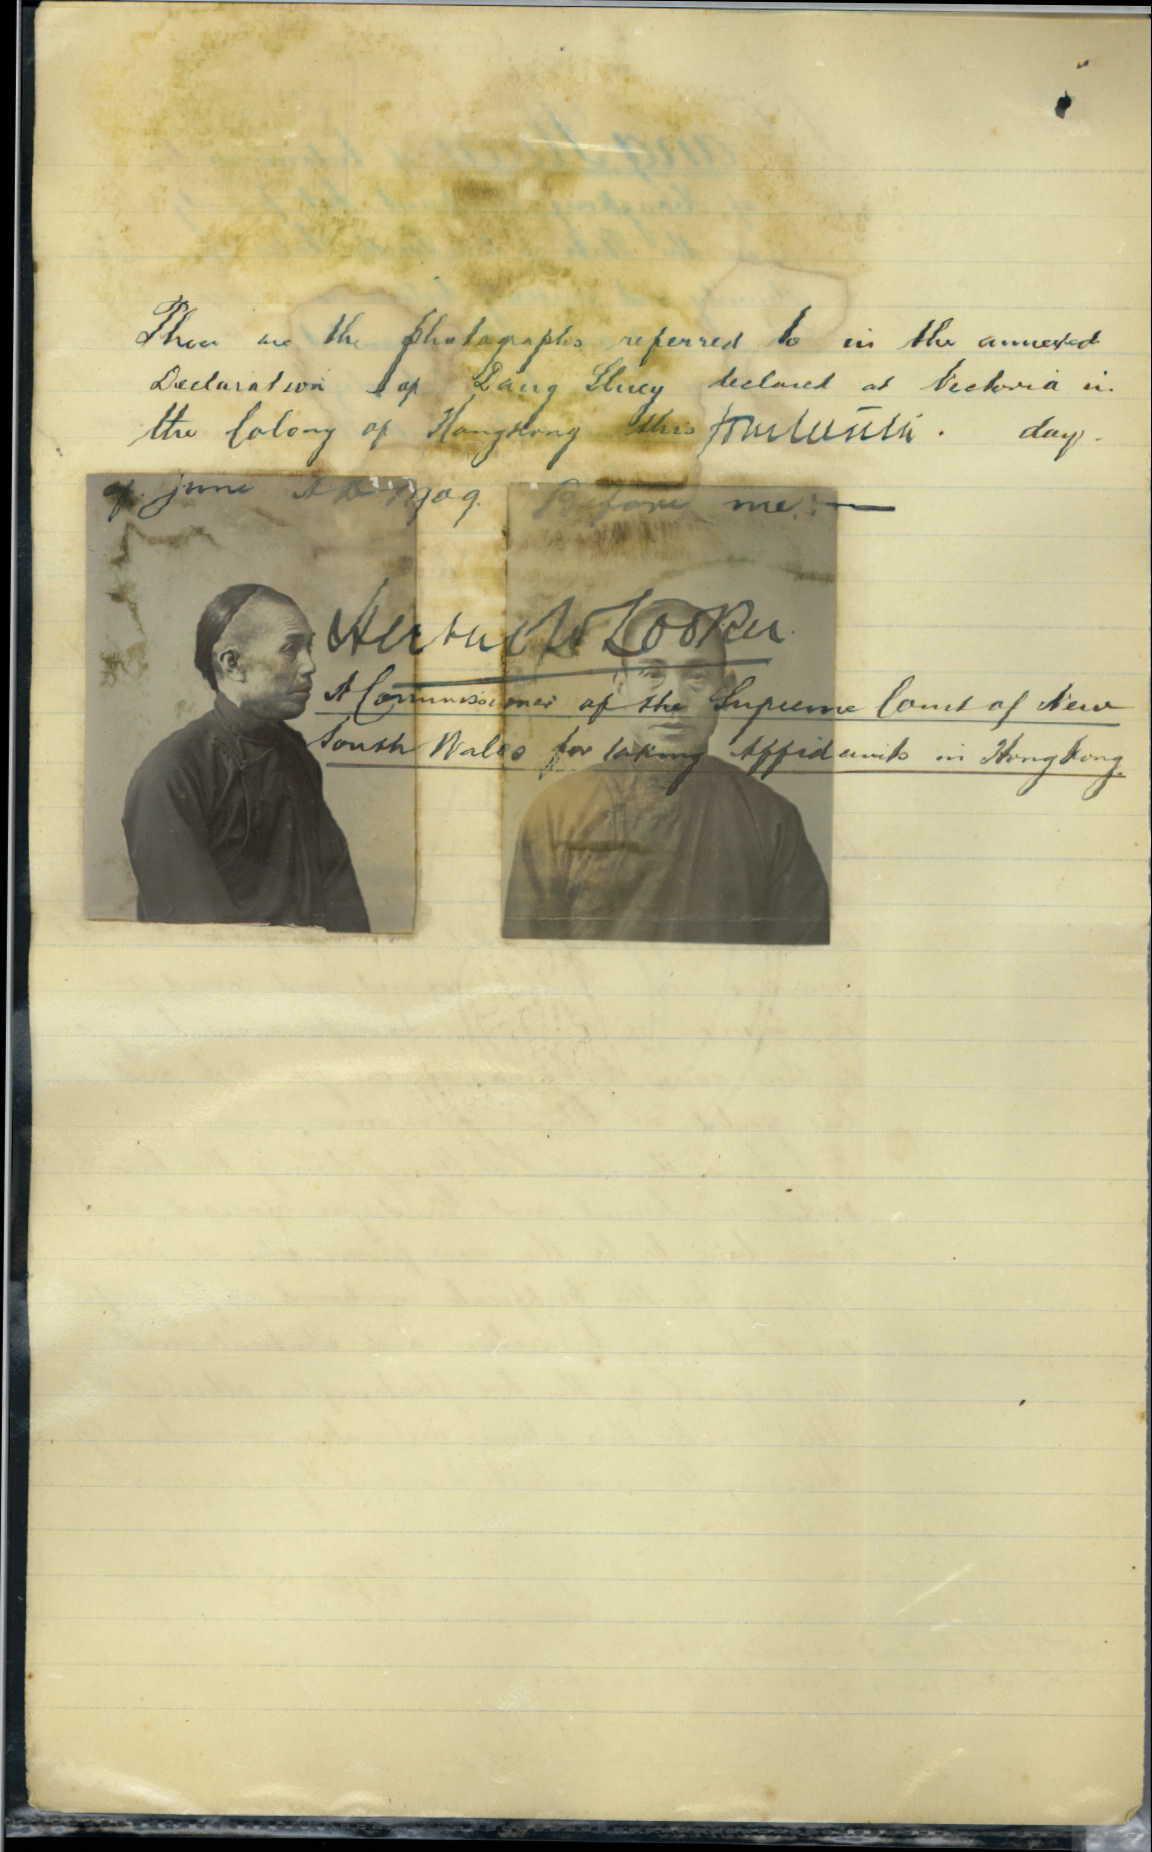 These are the photographs referred to in the annexed
Declaration of Dang Shuey declared at Victoria in
the Colony of Hongkong this fourteenth day
of June A D 1909. Before me:—
Herbert W Looker
A Commissioner of the Supreme Court of New
South Wales for taking Affidavits in Hongkong.